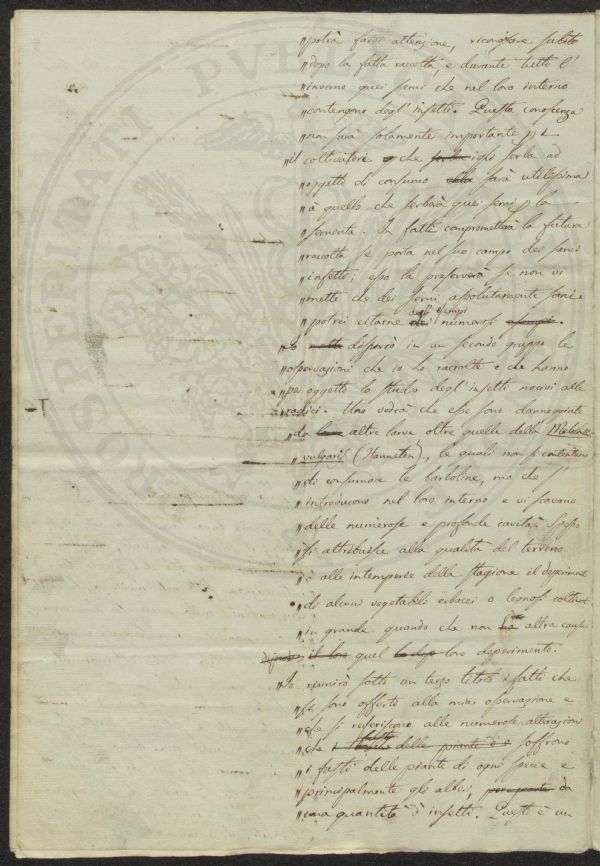 "potrà farsi attenzione, riconoscere subito
"dopo la fatta raccolta, e durante tutto l'
"inverno quei semi che nel loro interno
"contengono degl'insetti. Questa conoscenza
"non sarà solamente importante p
"il coltivatore che egli serba ad
"oggetto di consumo sarà utilissima
"à quello che serberà quei semi p la
"sementa. In fatti comprometterà la futura
"raccolta se porta nel suo campo dei semi
"infetti; esso la preserverà se non vi
"mette che dei semi assolutamente sani.
degli esempi
"potrei citarne dei numerosi esempi.
"Io metto disporrò in un secondo gruppo le
"osservazioni che io ho raccolte e che hanno
"per oggetto lo studio degl'insetti nocivi alle
"radici. Uno vedrà che esse sono danneggiate
"da altre larve oltre quelle della
"vulgaris (Hanneton), le quali non si contentano
"di consumare le barboline, ma che s'
"introducono nel loro interno e vi scavano
"delle numerose e profonde cavità. Spesso
"si attribuisce alla qualità del terreno
"ò alle intemperie della stagione il
"di alcuni vegetabili erbacei o legnosi
"in grande quando che non altra causa
il loro quel loro deperimento.
"Io riunirò sotto un terzo titolo i fatti che
"si sono offerti alla mia osservazione e
"che si riferiscono alle numerose alterazioni
"che delle piante soffrono
"i fusti delle piante di ogni specie e
"principalmente gli alberi, da
"una quantità d'insetti. Questo è un